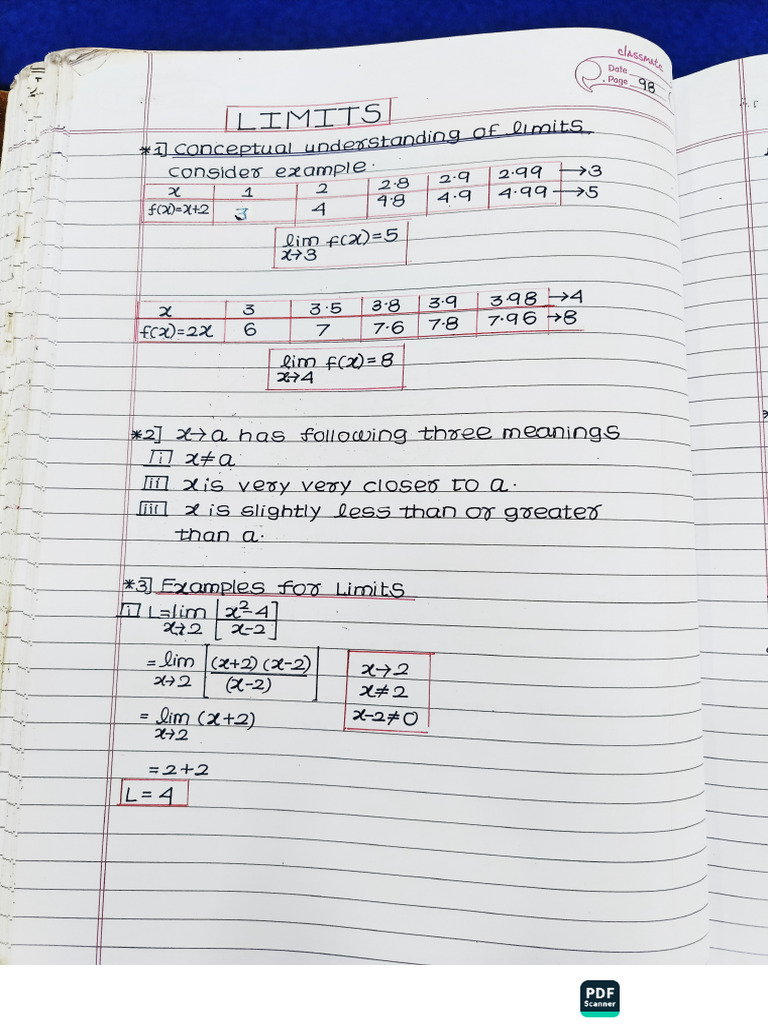 classmate
Date
Page 98
LIMITS
*1] Conceptual understanding of limits.
Consider example.
x 1 2 2.8 2.9 2.99 →3
f(x)=x+2 3 4 4.8 4.9 4.99 →5
lim f(x)=5
x→3
x 3 3.5 3.8 3.9 3.98 →4
f(x)=2x 6 7 7.6 7.8 7.96 →8
lim f(x)=8
x→4
*2] x→a has following three meanings
i] x≠a
ii] x is very very closer to a.
iii] x is slightly less than or greater
than a.
*3] Examples for Limits
i] L=lim [x²-4]
x→2 [x-2]
=lim [(x+2)(x-2)] x→2
x→2 [(x-2)] x≠2
= lim (x+2) x-2≠0
x→2
=2+2
L=4
PDF
Scanner